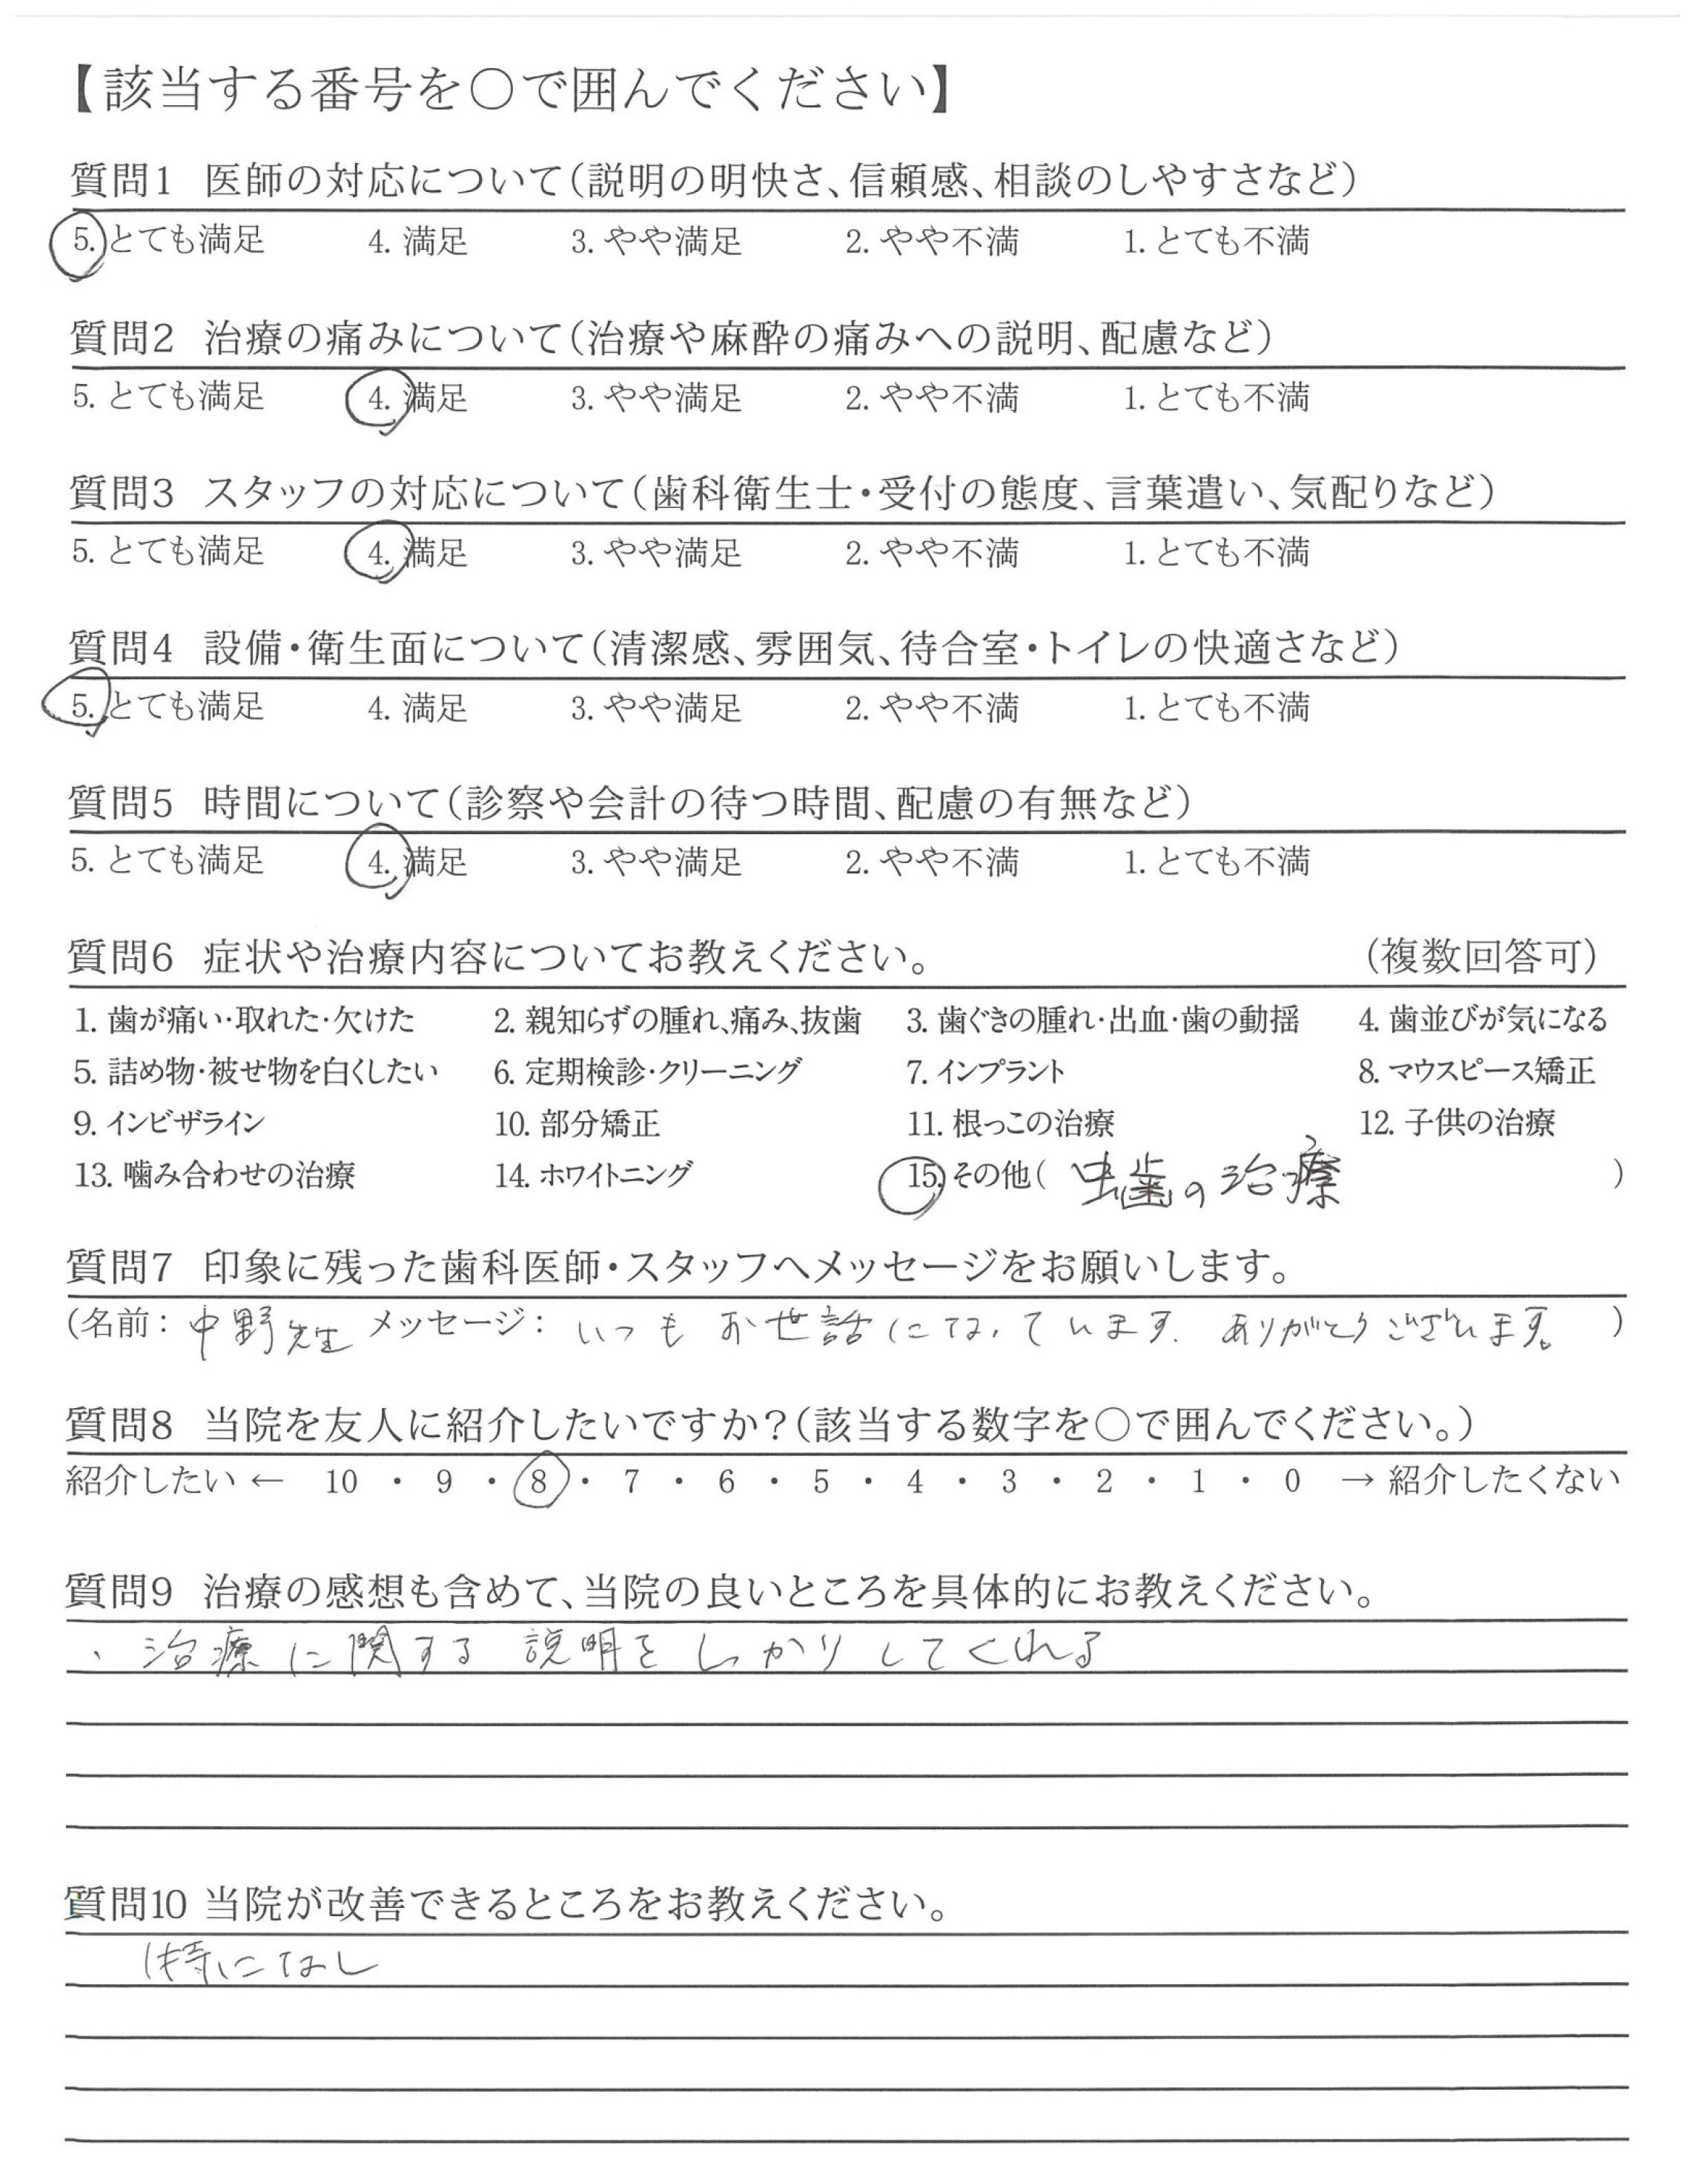 【該当する番号を〇で囲んでください】
質問1 医師の対応について(説明の明快さ、信頼感、相談のしやすさなど)
5. とても満足 4. 満足 3. やや満足 2. やや不満 1. とても不満
質問2 治療の痛みについて(治療や麻酔の痛みへの説明、配慮など)
5. とても満足 4. 満足 3. やや満足 2. やや不満 1. とても不満
質問3 スタッフの対応について(歯科衛生士・受付の態度、言葉遣い、気配りなど)
5. とても満足 4. 満足 3. やや満足 2. やや不満 1. とても不満
質問4 設備・衛生面について(清潔感、雰囲気、待合室・トイレの快適さなど)
5. とても満足 4. 満足 3. やや満足 2. やや不満 1. とても不満
質問5 時間について(診察や会計の待つ時間、配慮の有無など)
5. とても満足 4. 満足 3. やや満足 2. やや不満 1. とても不満
質問6 症状や治療内容についてお教えください。 (複数回答可)
1. 歯が痛い・取れた・欠けた 2. 親知らずの腫れ、痛み、抜歯 3. 歯ぐきの腫れ・出血・歯の動揺 4. 歯並びが気になる
5. 詰め物・被せ物を白くしたい 6. 定期検診・クリーニング 7. インプラント 8. マウスピース矯正
9. インビザライン 10. 部分矯正 11. 根っこの治療 12. 子供の治療
13. 噛み合わせの治療 14. ホワイトニング 15. その他( 虫歯の治療 )
質問7 印象に残った歯科医師・スタッフへメッセージをお願いします。
(名前: 中野先生 メッセージ: いつもお世話になっています。ありがとうございます。 )
質問8 当院を友人に紹介したいですか?(該当する数字を〇で囲んでください。)
紹介したい ← 10 ・ 9 ・ 8 ・ 7 ・ 6 ・ 5 ・ 4 ・ 3 ・ 2 ・ 1 ・ 0 → 紹介したくない
質問9 治療の感想も含めて、当院の良いところを具体的にお教えください。
、治療に関する説明をしっかりしてくれる
質問10 当院が改善できるところをお教えください。
特になし